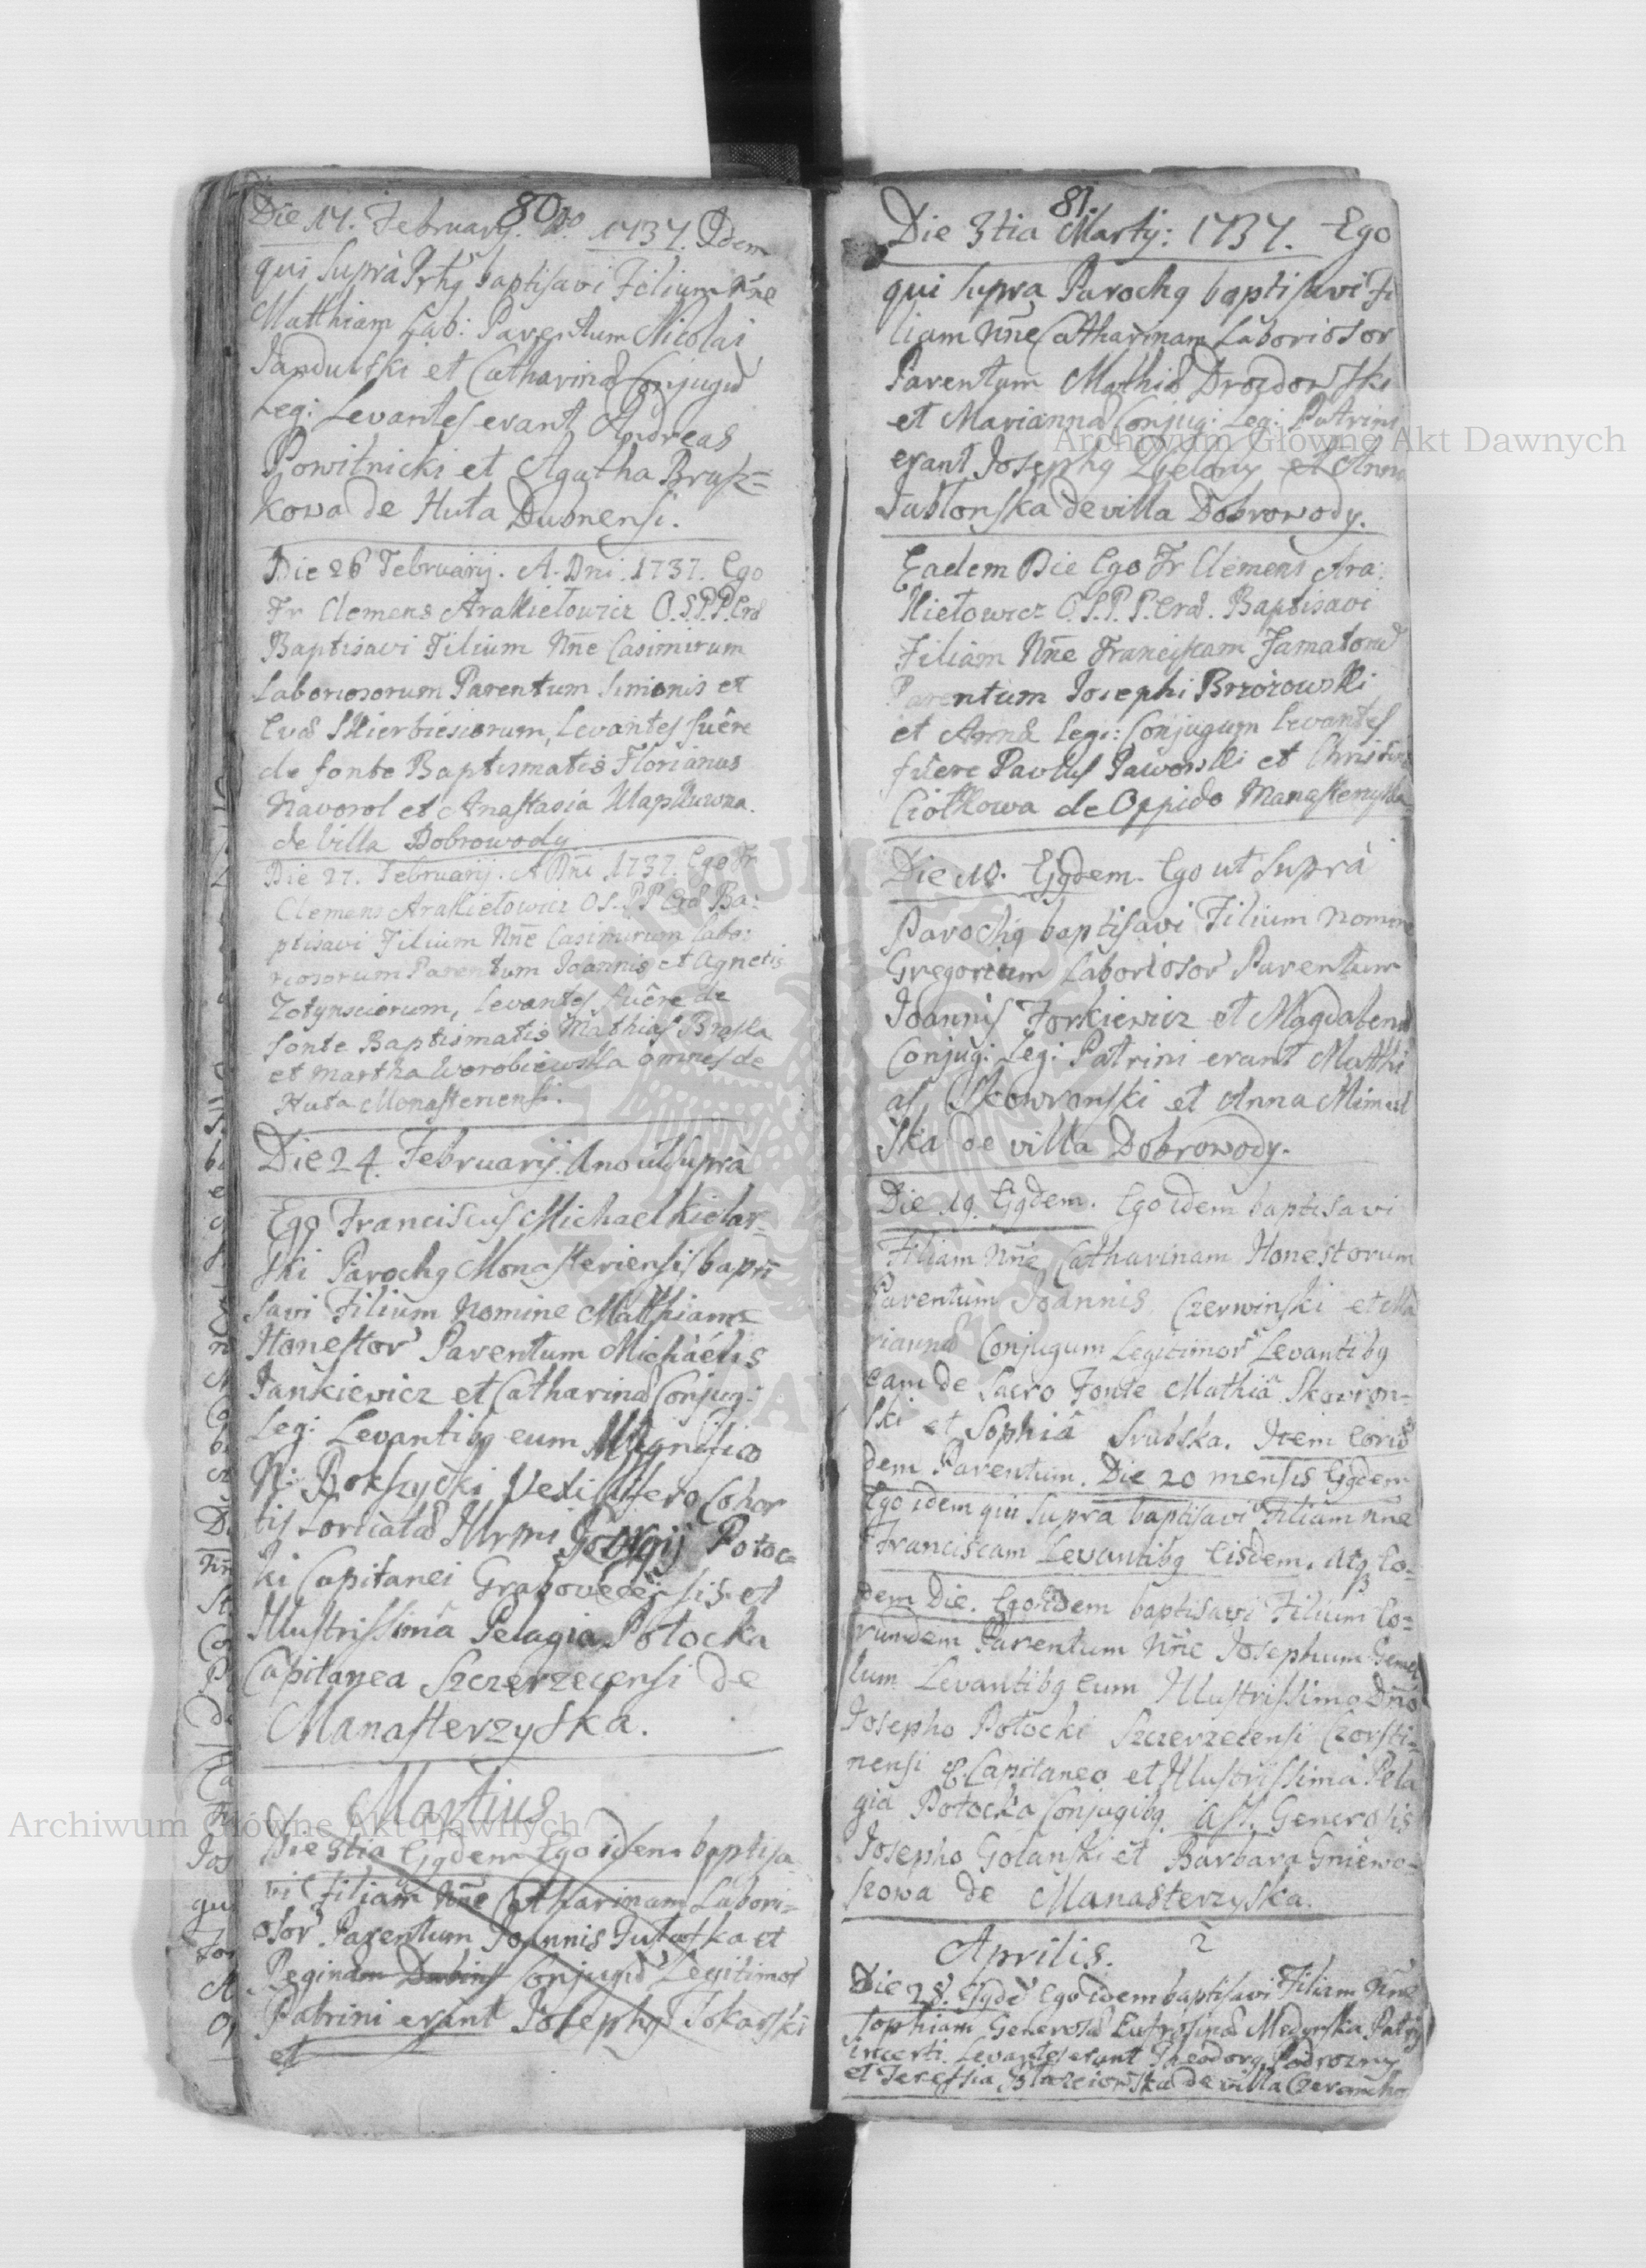 80
Die 17. Februarij. Ao 1737. Idem
qui suprà Prhg baptisavi Filium Nne
Matthiam Lab: Parentum Nicolai
et Catharina Conjugu
Leg: Levantes erant Andreas
Powitnicki et Agatha Brusz=
kowa de Huta Dubnensi.
Die 26 Februarij. A. Dni. 1737. Ego
Fr Clemens Arakielowicz O.S.P.P.Erd
Baptisavi Filium Nne Casimirum
Laboriosorum Parentum Simonis et
Eva Skierbiesiorum, Levantes fuêre
de fonte Baptismatis Florianus
Navorol et Anastasia
de Villa Dobrowody
Die 27. Februarij. A Dni 1737. Ego Fr
Clemens Arakielowicz O S.P P Erd Ba:
ptisavi Filium Nne Casimirum Labo:
riosorum Parentum Joannis et Agnetis
levantes fuêre de
fonte Baptismatis Mathias
et Martha Worobiewska omnes de
Huta Monasteriensi.
Die 24. Februarij. Ano ut suprà
Ego Franciscus Michael Kielar=
ski Parochg Monasteriensis bapti
savi Filium Nomine Matthiam
Honestor Parentum Michäelis
Jankiewicz et Catharina Conjug:
Leg: Levantibg eum Magnifico
N: Bokszycki Vexillifero Cohor
tis Loricata Illrmi Potoc=
ki Capitanei et
Illustrissimâ Pelagia Potocka
Capitanea Szczerzecensi de
Manasterzyska.
Martius
Die 3tia Egdem Ego idem baptisa
vi Filiam Nne Catharinam Labori=
osor Parentum Joannis et
Reginam Conjugu Legitimor
Patrini erant Josephg Tokarski
et
81.
Die 3tia Martij: 1737. Ego
qui supra Parochg baptisavi Fi
liam Nne Catharinam Laboriosor
Parentum Mathia Drozdowski
et Marianna Conjug: Leg: Patrini
erant Josephg Zielony et Anna
Jablonska de villa Dobrowody.
Eadem Die Ego Fr Clemens Ara:
kielowicz O.S.P.P.Erd. Baptisavi
Filiam Nne Franciscam Famatoru
Parentum Josephi Brzozowski
et Anna legi: Conjugum levantes
fuere Paulus Jaworski et Christina
Ciolkowa de Oppido Manasterzyska
Die 10. Egdem. Ego ut suprà
Parochg baptisavi Filium nomine
Gregorium Laboriosor Parentum
Joannis et Magdalena
Conjug: Leg: Patrini erant Matthi
as Skowronski et Anna
ska de villa Dobrowody.
Die 19. Egdem. Ego idem baptisavi
Filiam Nne Catharinam Honestorum
Parentum Joannis Czerwinski et Ma
rianna Conjugum Legitimor Levantibg
eam de Sacro Fonte Mathiâ Skowron=
ski et Sophiâ Srubska. Item Eorun
dem Parentum. Die 20 mensis Egdem
Ego idem qui supra baptisavi Filiam nne
Franciscam Levantibg Eisdem. Atq Eo=
dem Die. Ego idem baptisavi Filium Eo=
rumdem Parentum Nne Josephum Gemel
lum Levantibg Eum Illustrissimo Dno
Josepho Potocki Szczerzecensi Czorsti=
nensi & Capitaneo et Illustrissima Pela
gia Potocka Conjugibg. Ass. Generosis
Josepho Golanski et Barbara Gniewo=
szowa de Manasterzyska.
Aprilis. 2
Die 28. Egde Ego idem baptisavi Filiam Nne
Sophiam Generosa Eufrosina Medynska Patris
incerti. Levantes erant Theodorg Podrozny
et Teressia de villa
Archiwum Główne Akt Dawnych
Archiwum Główne Akt Dawnych